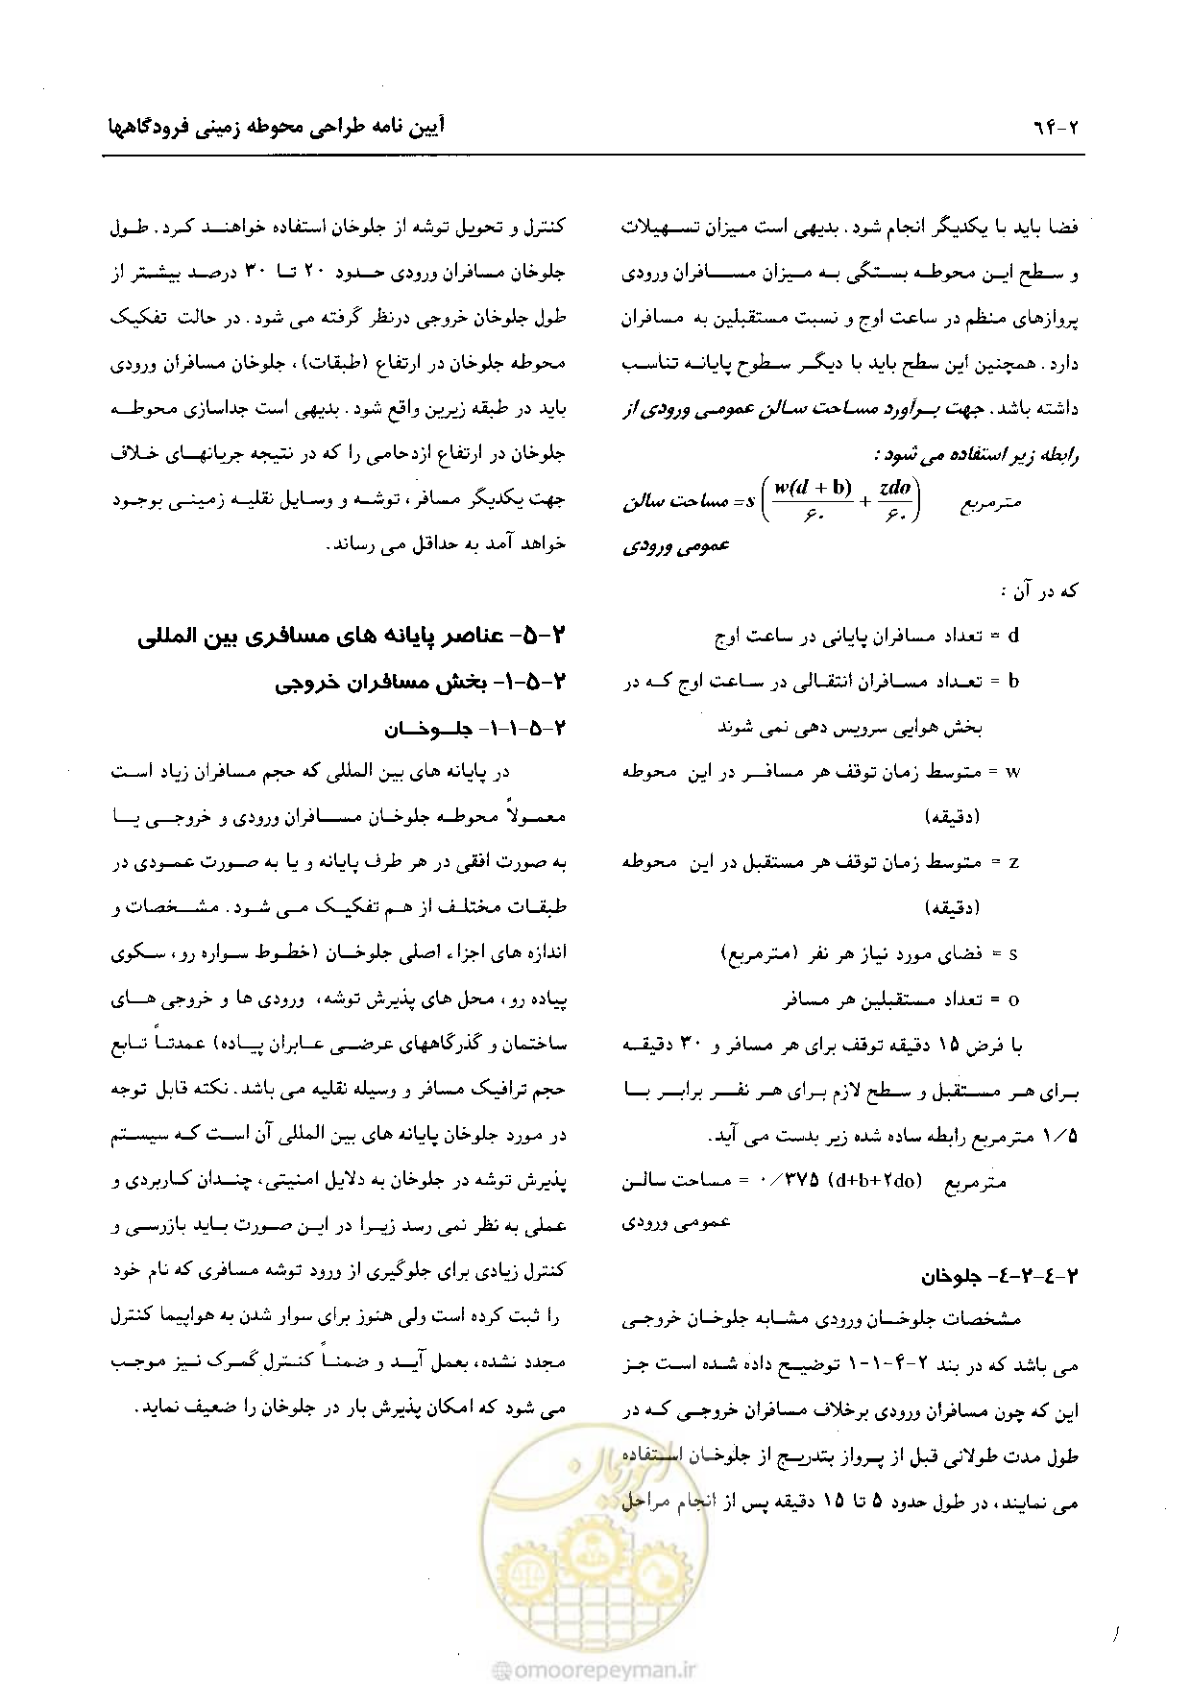 ۲-۶۴
آیین نامه طراحی محوطه زمینی فرودگاهها
فضا باید با یکدیگر انجام شود. بدیهی است میزان تسهیلات
و سطح این محوطه بستگی به میزان مسافران ورودی
پروازهای منظم در ساعت اوج و نسبت مستقبلین به مسافران
دارد. همچنین این سطح باید با دیگر سطوح پایانه تناسب
داشته باشد. جهت برآورد مساحت سالن عمومی ورودی از
رابطه زیر استفاده می شود:
مساحت سالن = s (w(d + b)/۶۰ + zdo/۶۰) مترمربع
عمومی ورودی
که در آن :
d = تعداد مسافران پایانی در ساعت اوج
b = تعداد مسافران انتقالی در ساعت اوج که در
بخش هوایی سرویس دهی نمی شوند
w = متوسط زمان توقف هر مسافر در این محوطه
(دقیقه)
z = متوسط زمان توقف هر مستقبل در این محوطه
(دقیقه)
s = فضای مورد نیاز هر نفر (مترمربع)
o = تعداد مستقبلین هر مسافر
با فرض ۱۵ دقیقه توقف برای هر مسافر و ۳۰ دقیقه
برای هر مستقبل و سطح لازم برای هر نفر برابر با
۱/۵ مترمربع رابطه ساده شده زیر بدست می آید.
مساحت سالن = ۰/۳۷۵ (d+b+۲do) مترمربع
عمومی ورودی
۲-٤-۲-٤- جلوخان
مشخصات جلوخان ورودی مشابه جلوخان خروجی
می باشد که در بند ۲-۴-۱-۱ توضیح داده شده است جز
این که چون مسافران ورودی برخلاف مسافران خروجی که در
طول مدت طولانی قبل از پرواز بتدریج از جلوخان استفاده
می نمایند، در طول حدود ۵ تا ۱۵ دقیقه پس از انجام مراحل
کنترل و تحویل توشه از جلوخان استفاده خواهند کرد. طول
جلوخان مسافران ورودی حدود ۲۰ تا ۳۰ درصد بیشتر از
طول جلوخان خروجی درنظر گرفته می شود. در حالت تفکیک
محوطه جلوخان در ارتفاع (طبقات)، جلوخان مسافران ورودی
باید در طبقه زیرین واقع شود. بدیهی است جداسازی محوطه
جلوخان در ارتفاع ازدحامی را که در نتیجه جریانهای خلاف
جهت یکدیگر مسافر، توشه و وسایل نقلیه زمینی بوجود
خواهد آمد به حداقل می رساند.
۲-۵- عناصر پایانه های مسافری بین المللی
۲-۵-۱- بخش مسافران خروجی
۲-۵-۱-۱- جلوخان
در پایانه های بین المللی که حجم مسافران زیاد است
معمولاً محوطه جلوخان مسافران ورودی و خروجی یا
به صورت افقی در هر طرف پایانه و یا به صورت عمودی در
طبقات مختلف از هم تفکیک می شود. مشخصات و
اندازه های اجزاء اصلی جلوخان (خطوط سواره رو، سکوی
پیاده رو، محل های پذیرش توشه، ورودی ها و خروجی های
ساختمان و گذرگاههای عرضی عابران پیاده) عمدتاً تابع
حجم ترافیک مسافر و وسیله نقلیه می باشد. نکته قابل توجه
در مورد جلوخان پایانه های بین المللی آن است که سیستم
پذیرش توشه در جلوخان به دلایل امنیتی، چندان کاربردی و
عملی به نظر نمی رسد زیرا در این صورت باید بازرسی و
کنترل زیادی برای جلوگیری از ورود توشه مسافری که نام خود
را ثبت کرده است ولی هنوز برای سوار شدن به هواپیما کنترل
مجدد نشده، بعمل آید و ضمناً کنترل گمرک نیز موجب
می شود که امکان پذیرش بار در جلوخان را ضعیف نماید.
امور پیمان
@omoorepeyman.ir